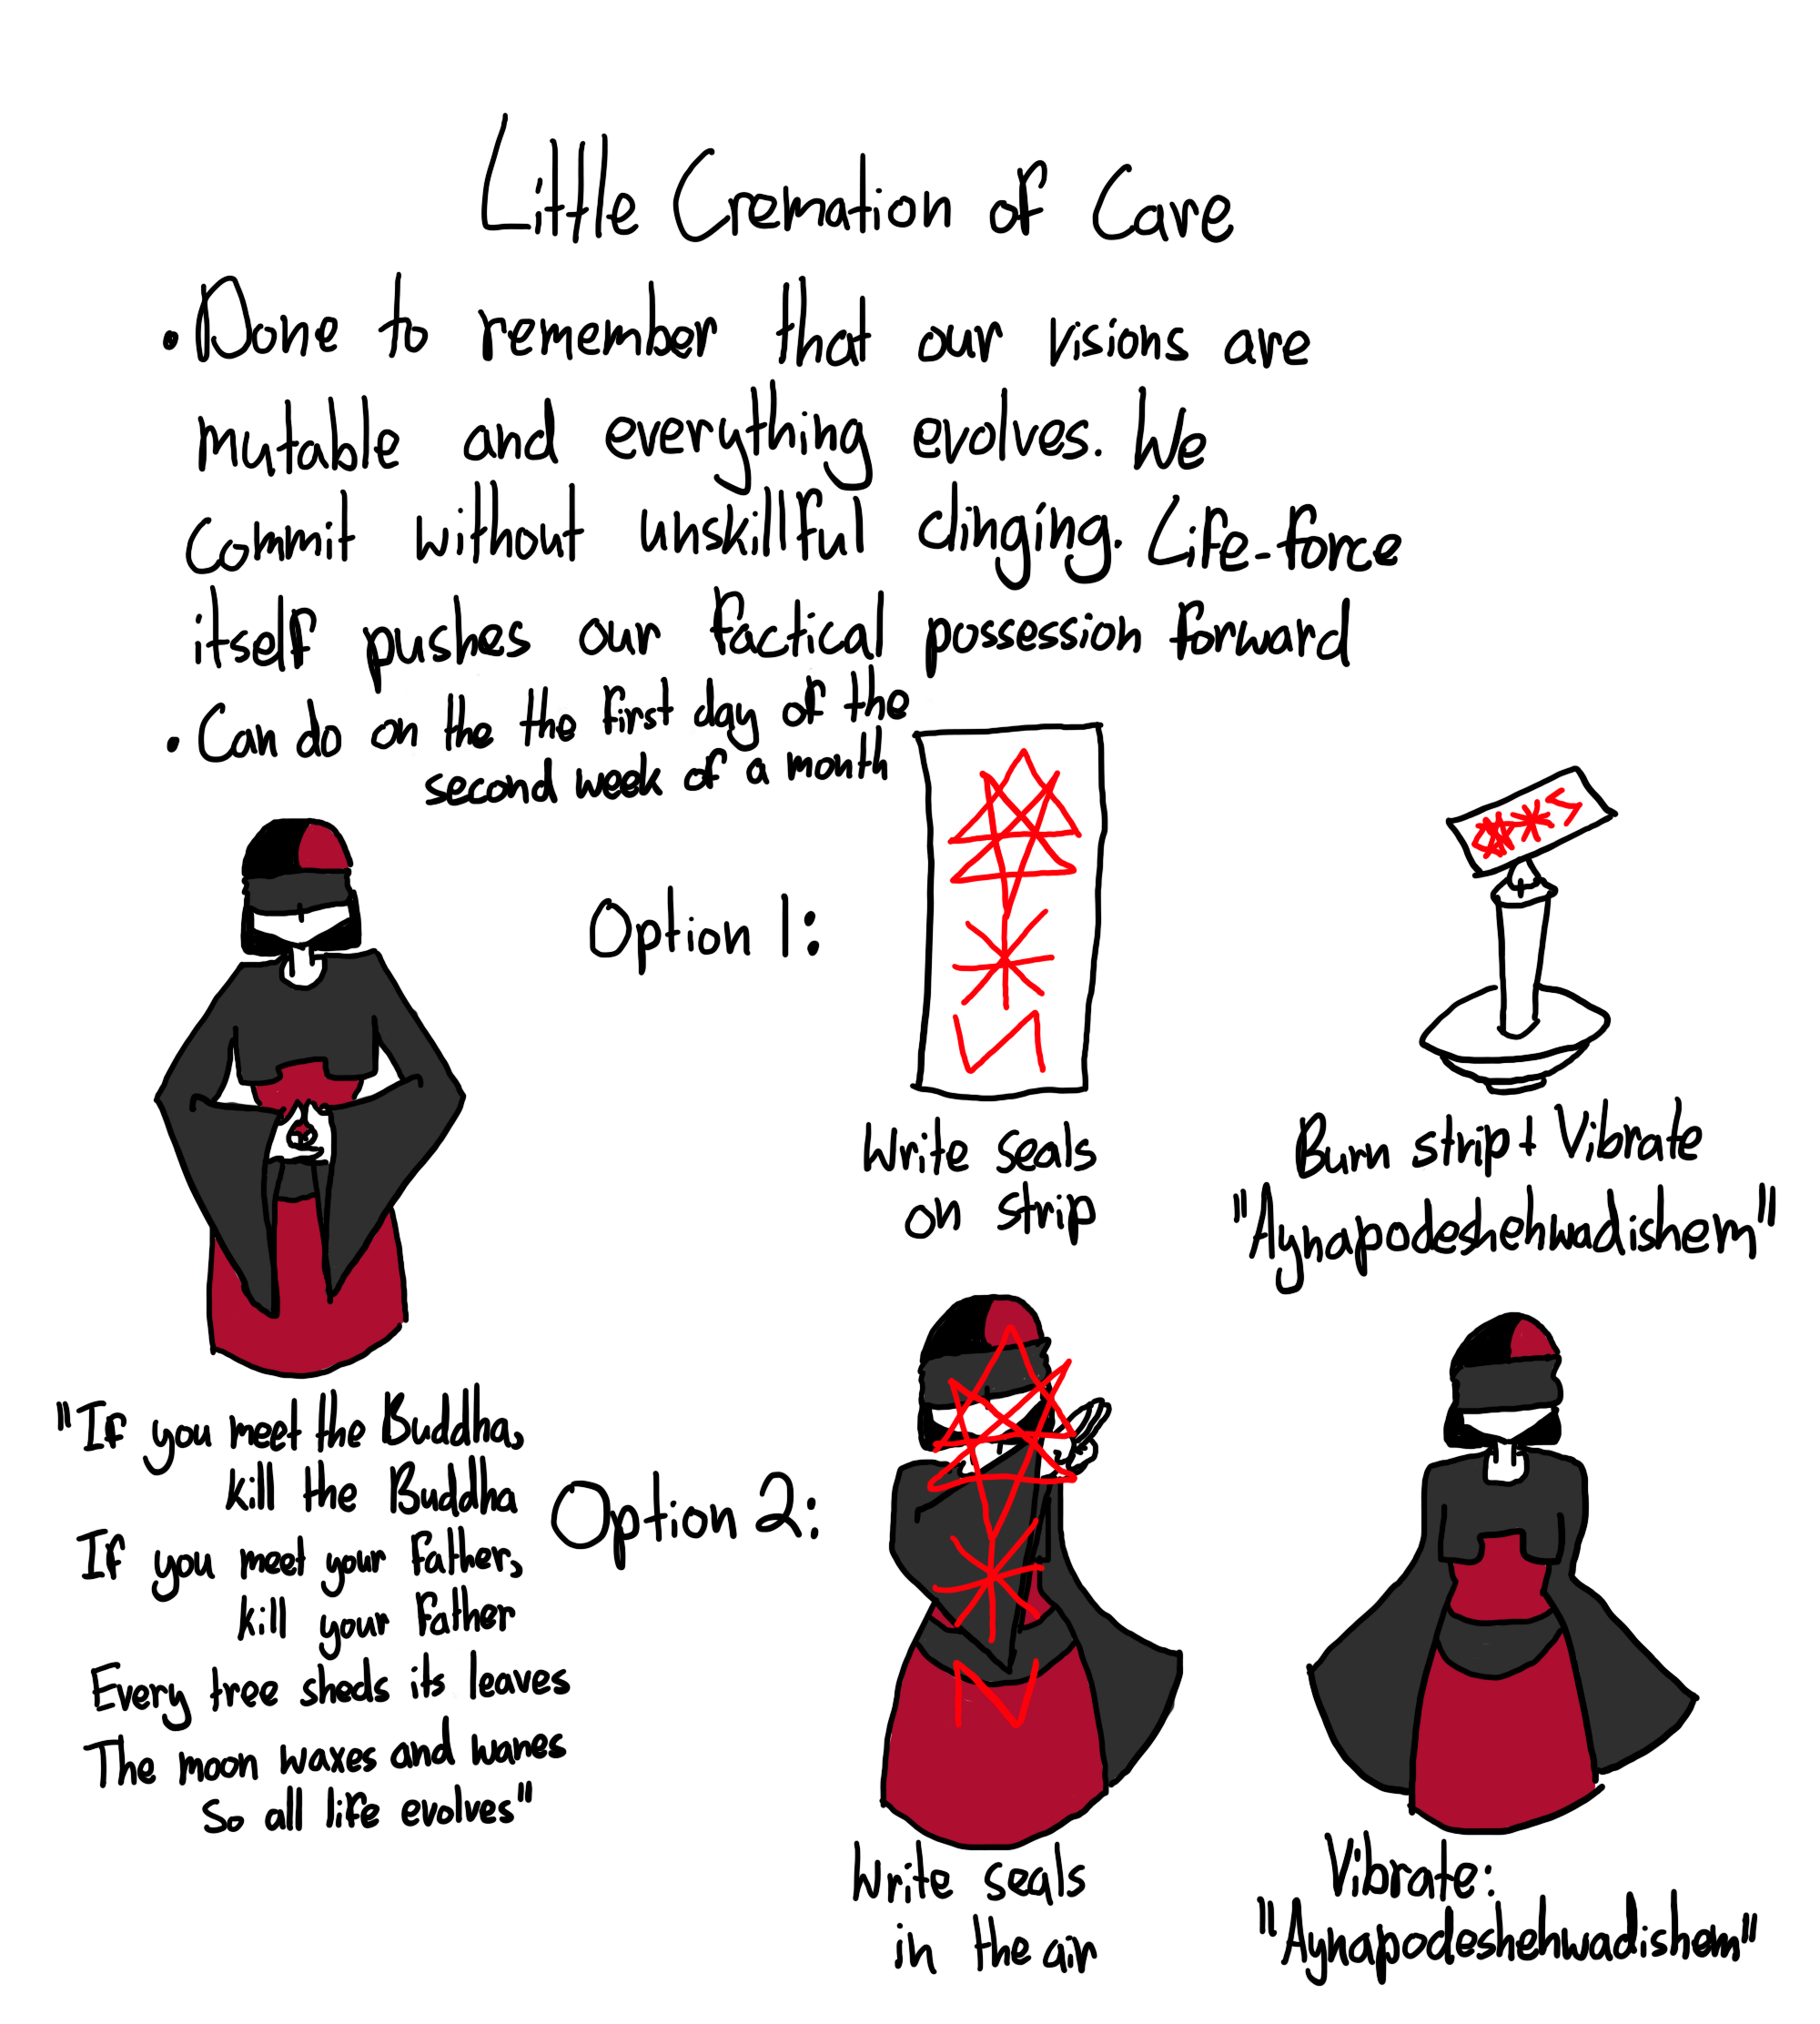 Little Cremation of Care
• Done to remember that our visions are
mutable and everything evolves. We
commit without unskillful clinging. Life-force
itself pushes our tactical possession forward
• Can do on the the first day of the
second week of a month
Option 1:
Write seals
on strip
Burn strip + Vibrate
"Aynapodeshehwadishem"
"If you meet the Buddha,
kill the Buddha
If you meet your father,
kill your father
Every tree sheds its leaves
The moon waxes and wanes
so all life evolves"
Option 2:
Write seals
in the air
Vibrate:
"Aynapodeshehwadishem"